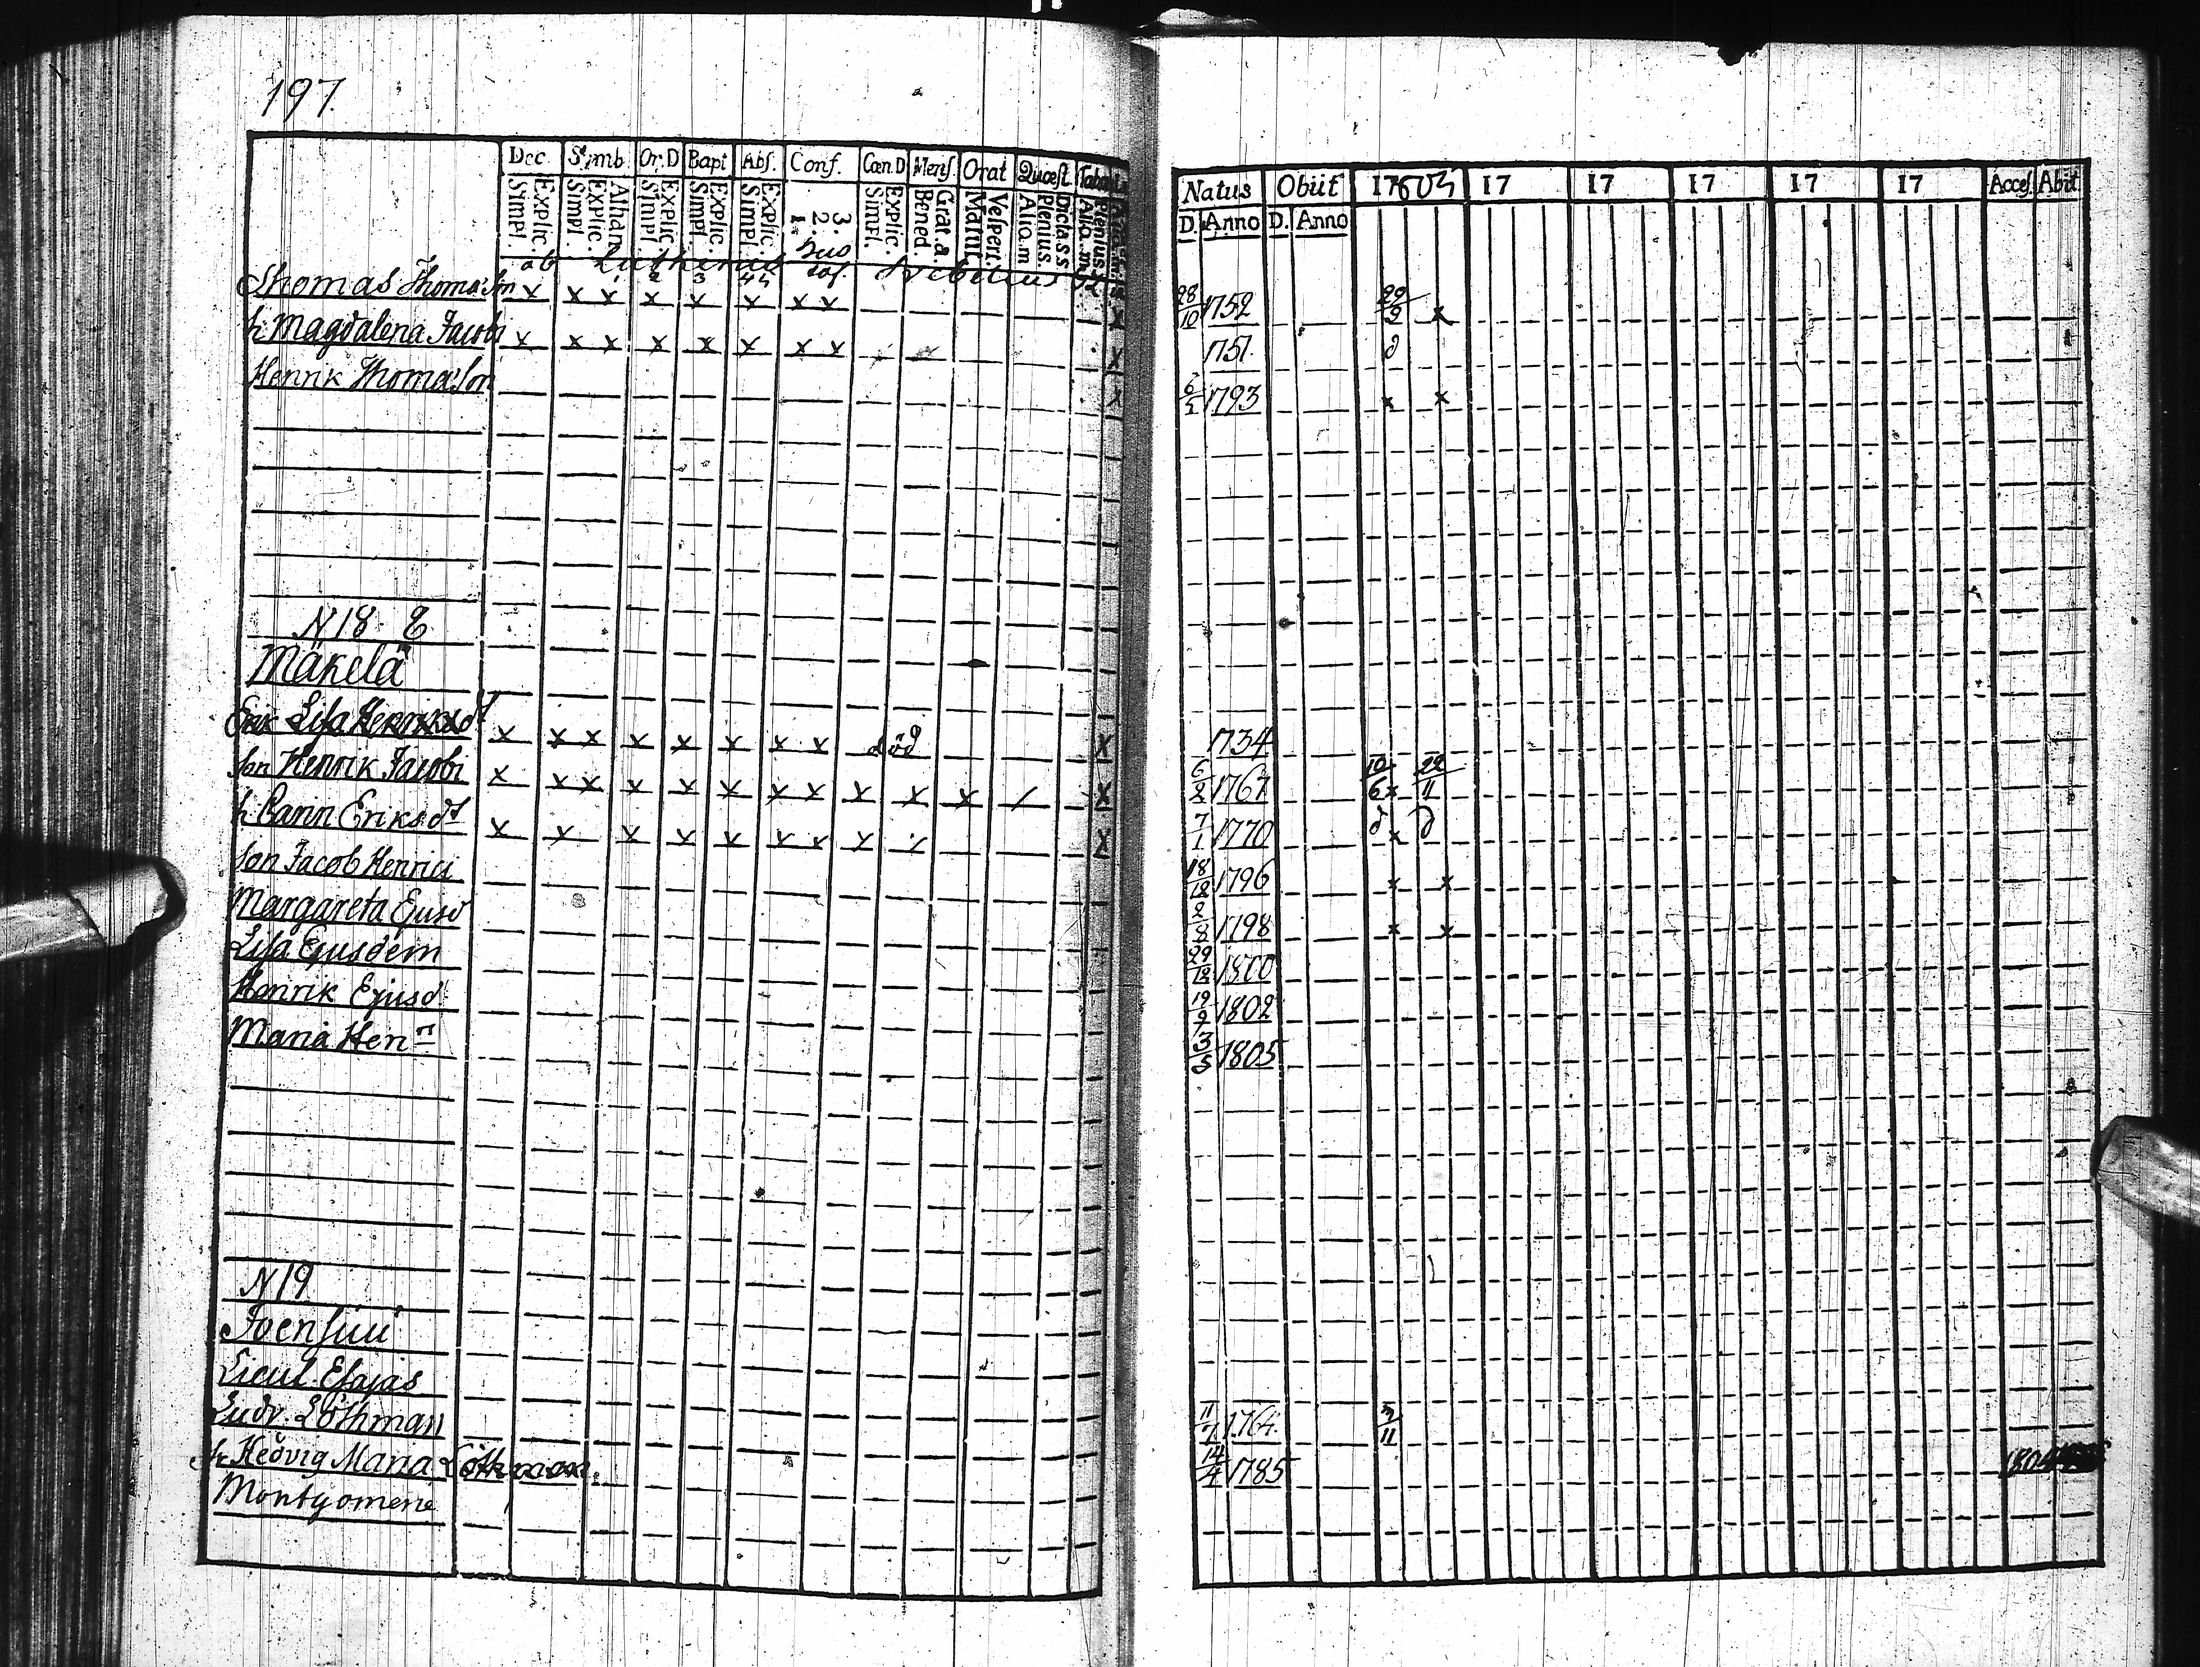 197.
Dec. Symb. Or.D Bapt Abs. Conf. Cœn.D Mens. Orat Quæst. Tabu
Simpl. Explic. Simpl. Explic. Athan. Simpl. Explic. Simpl. Explic. Simpl. Explic. 1. 2. 3. Simpl. Explic. Bened. Grat.a. Matut. Vespert. Alio.m Plenius. Dicta.s.s. Alio.m Plenius.
Natus Obiit 1803 17 17 17 17 17 Acces. Abit
D. Anno D. Anno
Thomas Thomasson x x x x x x x x x x 28/10 1752 29/9 x
h. Magdalena Jacobi x x x x x x x x x 1751. d
Henrik Thomasson x 6/5 1793 x x
N 18 E
Mäkelä
Enk Lisa Henriksdt x x x x x x x x död x 1734
son Henrik Jacobi x x x x x x x x x x x x 6/8 1767 10/6 x 22/11
h. Carin Eriksdt x x x x x x x x x 7/1 1770 d x d
son Jacob Henrici 18/12 1796 x x
Margareta Ejusd 2/8 1798 x x
Lisa Ejusdem 29/12 1800
Henrik Ejusd 19/9 1802
Maria Hen 3/5 1805
N 19
Joensuu
Lieut. Esajas
Ludv. Löthman 11/7 1764. 3/11
fr Hedvig Maria Löthman 14/4 1785 1804
Montgomerie